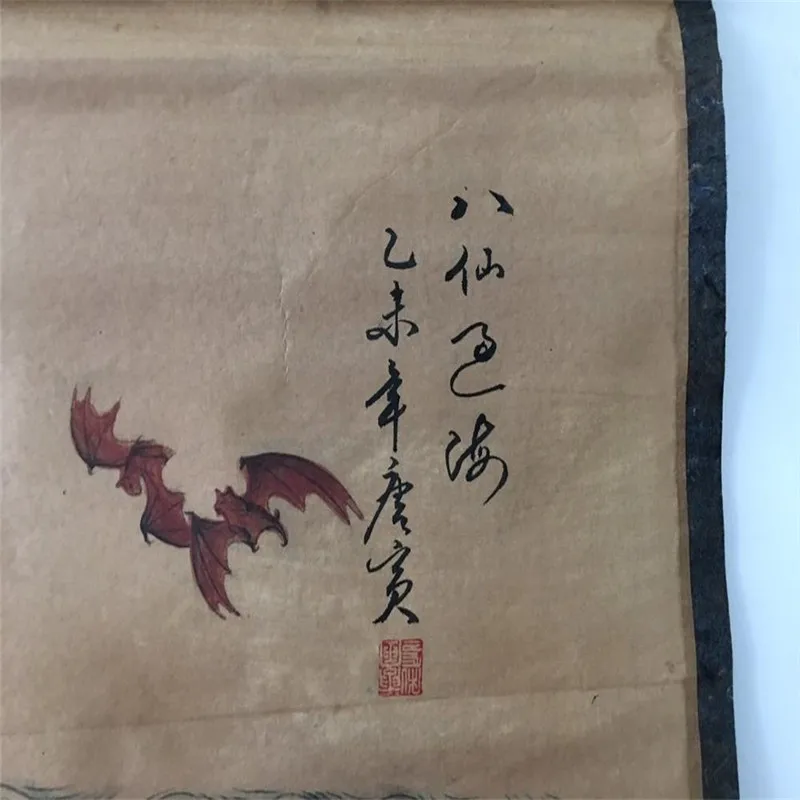 八仙过海
乙未年唐寅